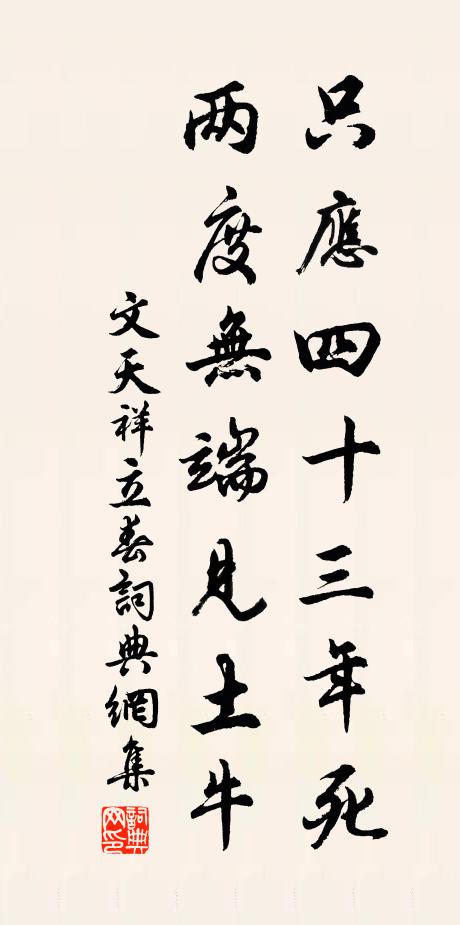 只應四十三年死
两度無端見土牛
文天祥立春詞典網集
詞典
网印